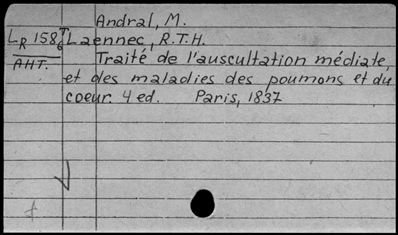 Andral, M.
LR 1586 Laennec, R.T.H.
AHT. Traité de l'auscultation médiate,
et des maladies des poumons et du
coeur. 4 ed. Paris, 1837